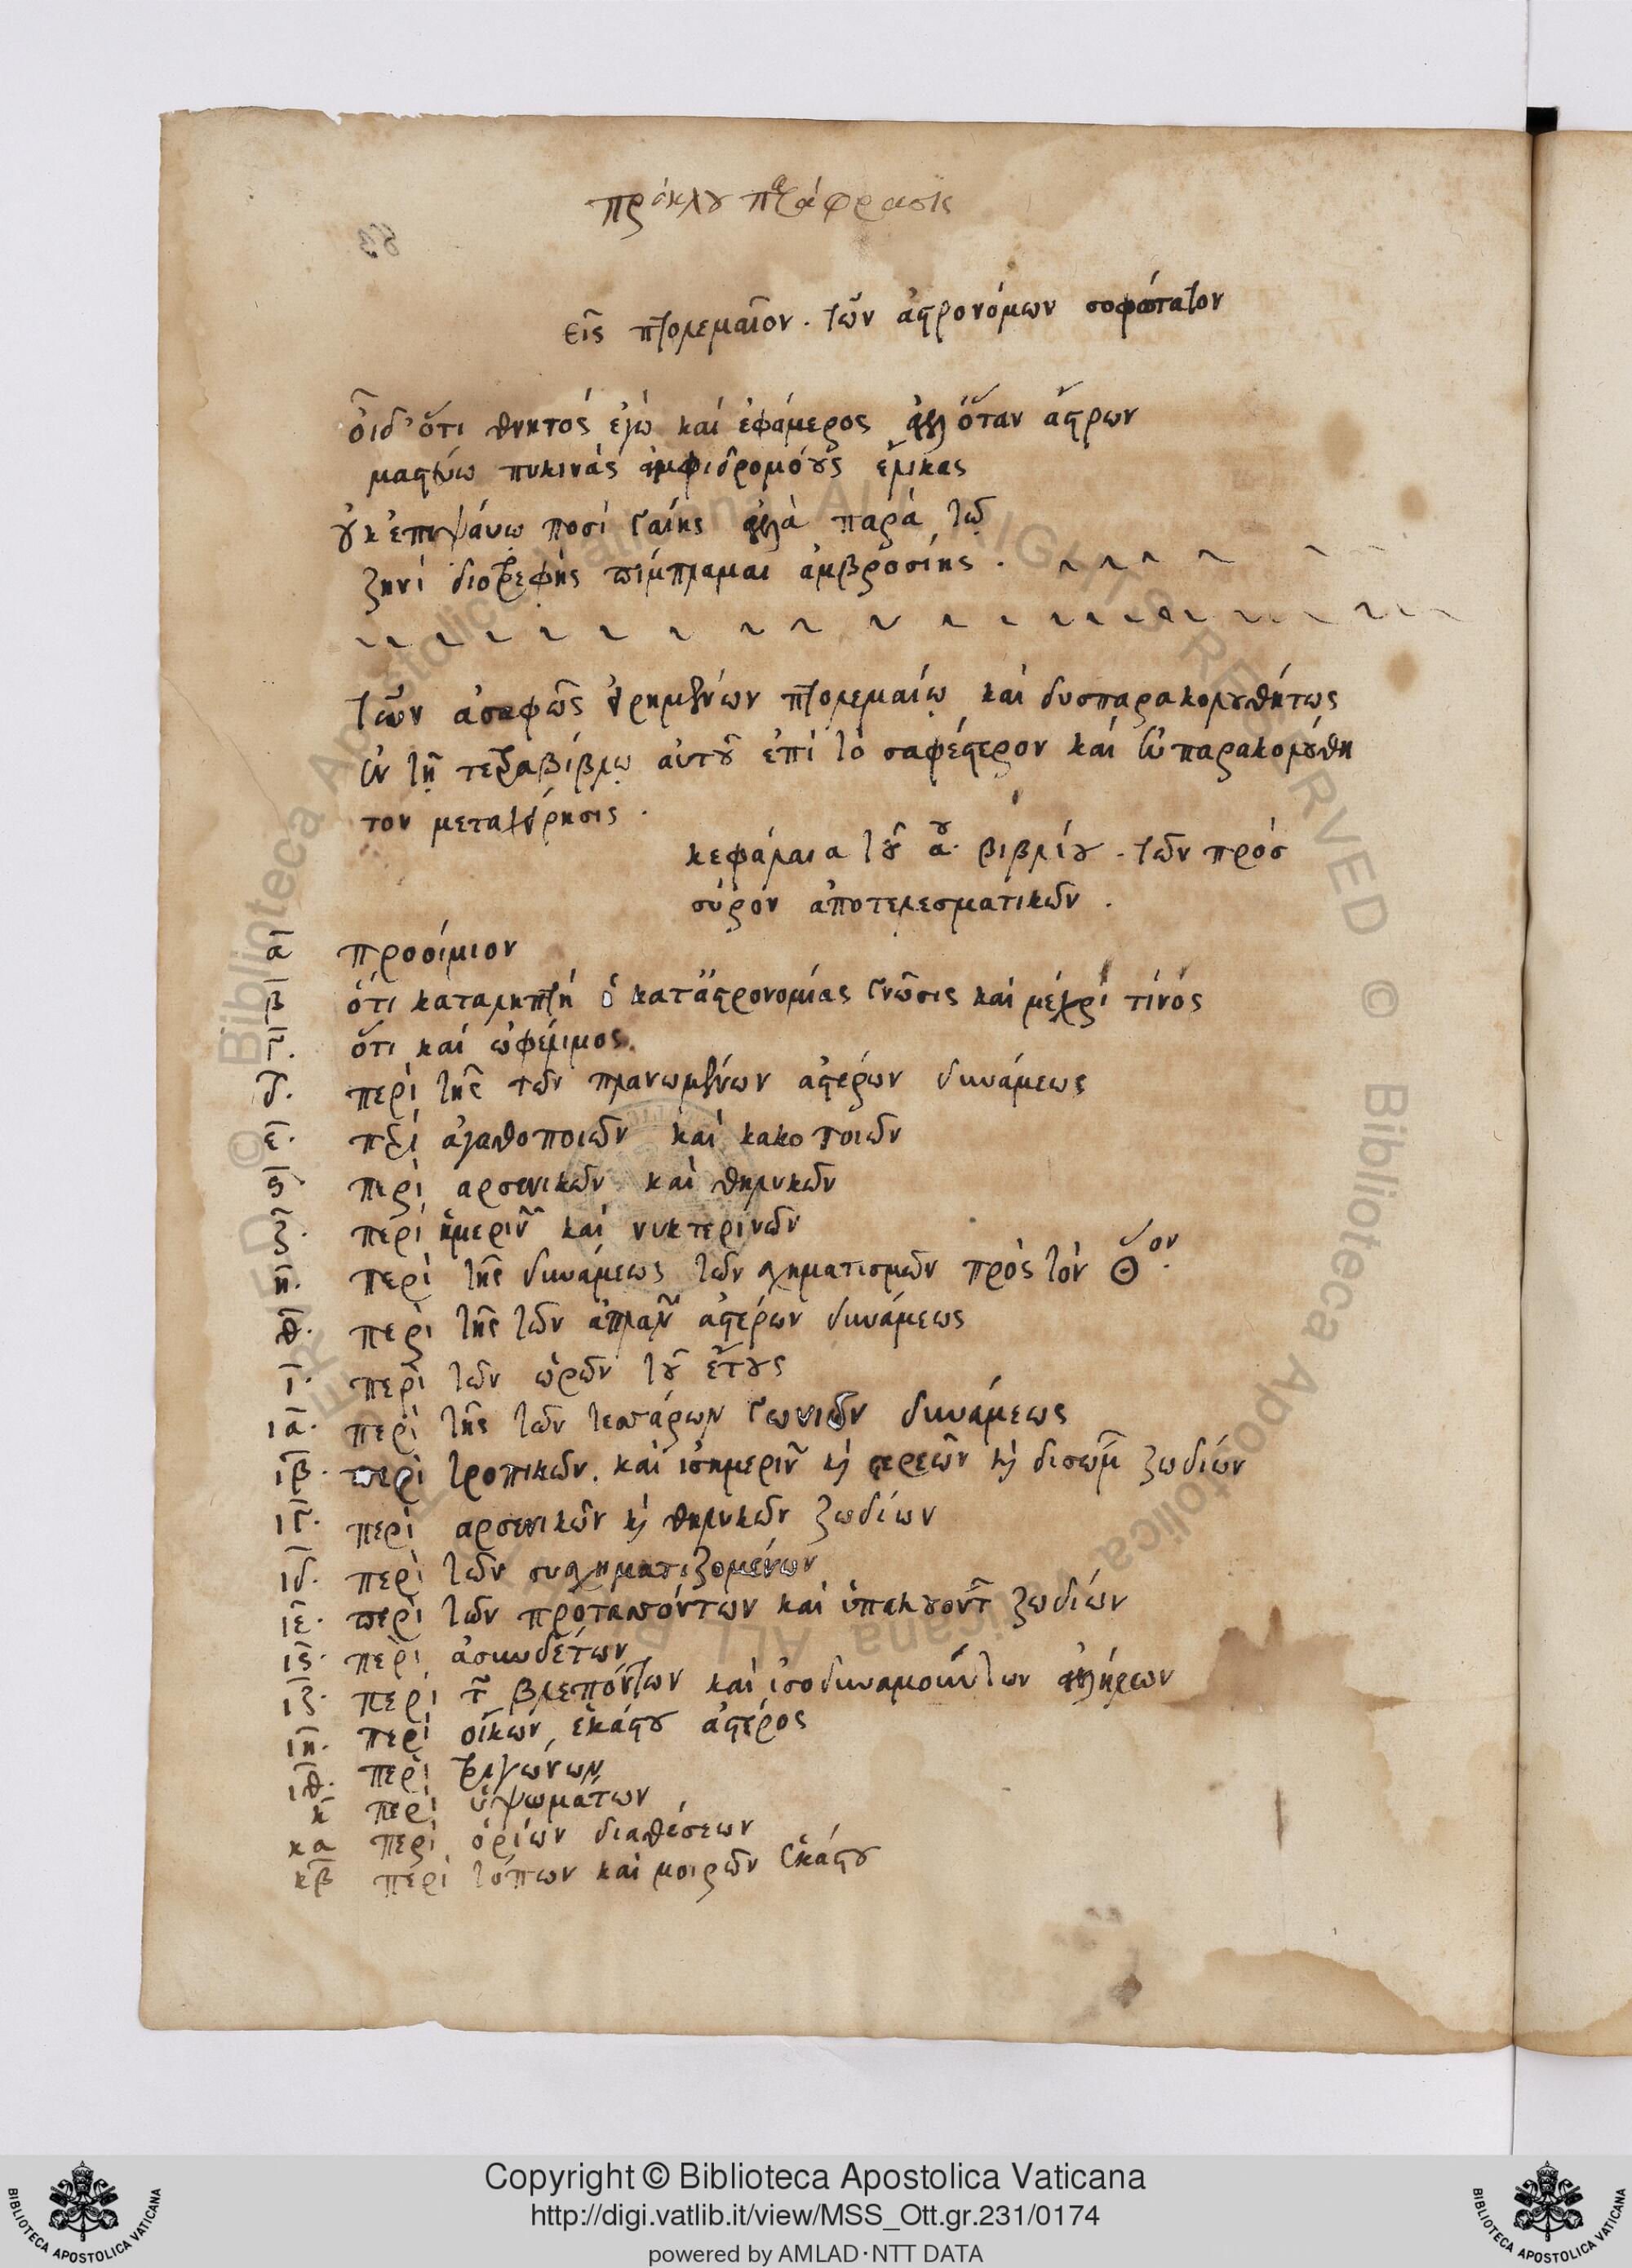 πρόκλου παράφρασις
εἰς πτολεμαῖον. τῶν ἀστρονόμων σοφώτατον
οἶδ' ὅτι θνητός ἐγὼ καὶ ἐφάμερος ἀλλ' ὅταν ἄστρων
μαστεύω πυκινάς ἀμφιδρομούς ἕλικας
οὐκ ἐπιψάυω ποσὶ γαίης ἀλλὰ παρὰ τῷ
ζηνὶ διοτρεφὴς πίμπλαμαι ἀμβροσίης.
τῶν ἀσαφῶς εἰρημένων πτολεμαίῳ καὶ δυσπαρακολουθήτως
ἐν τῇ τετραβίβλῳ αὐτοῦ ἐπὶ τὸ σαφέστερον καὶ εὐπαρακολούθη
τον μεταχείρησις.
κεφάλαια τοῦ α^ου βιβλίου. τῶν πρὸσ
σύρον ἀποτελεσματικῶν.
α προοίμιον
β ὅτι καταληπτὴ ἡ κατ' ἀστρονομίας γνῶσις καὶ μέχρι τινός
γ. ὅτι καὶ ὠφέλιμος.
δ. περὶ τῆς τῶν πλανωμένων ἀστέρων δυνάμεως
ε. περὶ ἀγαθοποιῶν καὶ κακοποιῶν
ϛ περὶ αρσενικῶν καὶ θηλυκῶν
ζ. περὶ ἡμερινῶν καὶ νυκτερινῶν
η. περὶ τῆς δυνάμεως τῶν σχηματισμῶν πρὸς τὸν ☉^ον.
θ. περὶ τῆς τῶν ἀπλανῶν ἀστέρων δυνάμεως
ι. περὶ τῶν ὡρῶν τοῦ ἔτους
ια. περὶ τῆς τῶν τεσσάρων γωνιῶν δυνάμεως
ιβ. περὶ τροπικῶν. καὶ ἰσημερινῶν καὶ στερεῶν καὶ δισώμων ζωδίων
ιγ. περὶ αρσενικῶν καὶ θηλυκῶν ζωδίων
ιδ. περὶ τῶν συσχηματιζομένων
ιε. περὶ τῶν προτασσόντων καὶ ὑπακουόντων ζωδίων
ιϛ. περὶ ἀσυνδέτων
ιζ. περὶ τῶν βλεπόντων καὶ ἰσοδυναμούντων ἀλλήλων
ιη. περὶ οἴκων ἑκάστου ἀστέρος
ιθ. περὶ τριγώνων
κ περὶ ὑψωμάτων
κα περὶ ὁρίων διαθέσεων
κβ περὶ τόπων καὶ μοιρῶν ἑκάστου
Copyright © Biblioteca Apostolica Vaticana
http://digi.vatlib.it/view/MSS_Ott.gr.231/0174
powered by AMLAD·NTT DATA
BIBLIOTECA APOSTOLICA VATICANA
BIBLIOTECA APOSTOLICA VATICANA